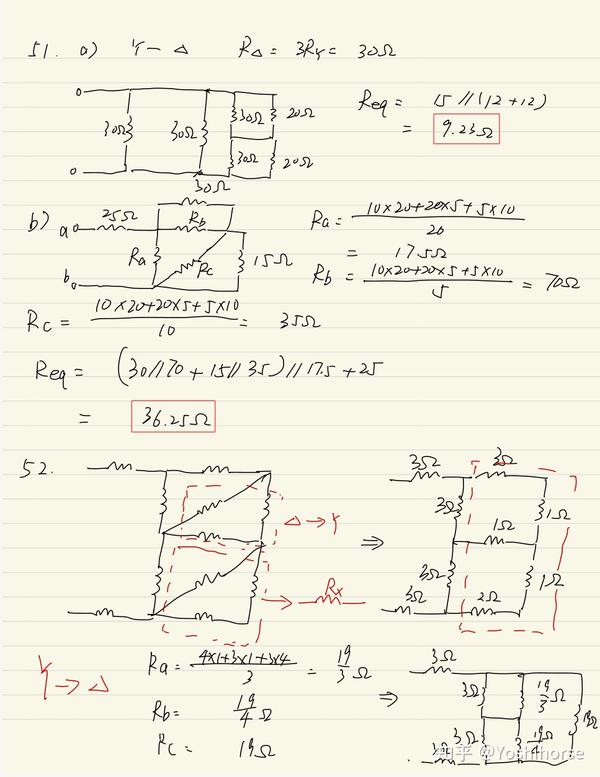 51. a) Y - Δ RΔ = 3RY = 30Ω
30Ω 30Ω 30Ω 20Ω
30Ω 20Ω
Req = 15 // (12 + 12)
= 9.23Ω
b) a 25Ω 30Ω Rb
Ra Rc 15Ω
b
Ra = 10×20+20×5+5×10 / 20
= 17.5Ω
Rb = 10×20+20×5+5×10 / 5 = 70Ω
Rc = 10×20+20×5+5×10 / 10 = 35Ω
Req = (30//70 + 15//35) // 17.5 + 25
= 36.25Ω
52.
Δ → Y
→ Rx
⇒
3Ω 3Ω
3Ω 1Ω 1Ω
3Ω 1Ω
3Ω 2Ω
Y → Δ
Ra = 4×1+3×1+3×4 / 3 = 19/3 Ω
Rb = 19/4 Ω
Rc = 19Ω
⇒
3Ω
3Ω 19/3 Ω 19Ω
3Ω 19/4 Ω
3Ω
知乎 @Yoshihorse